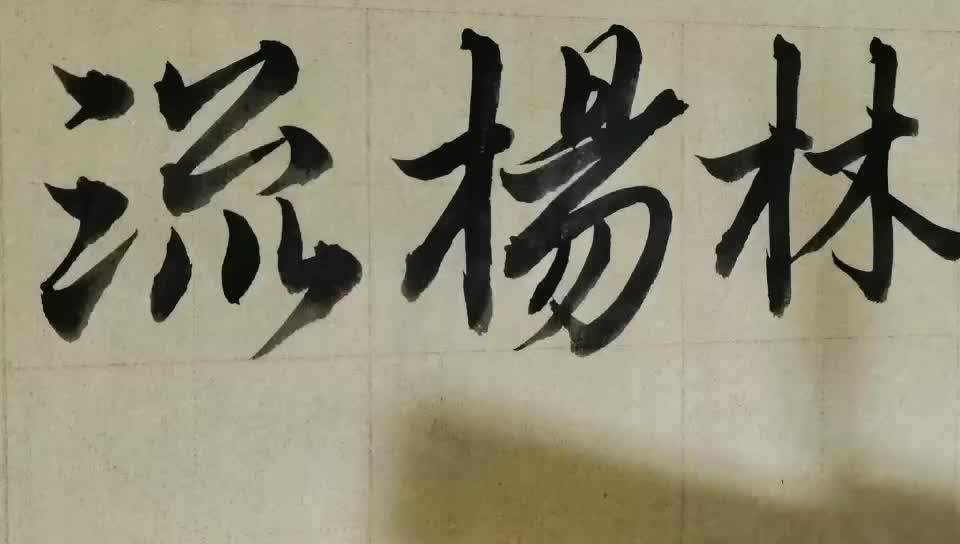 流楊林